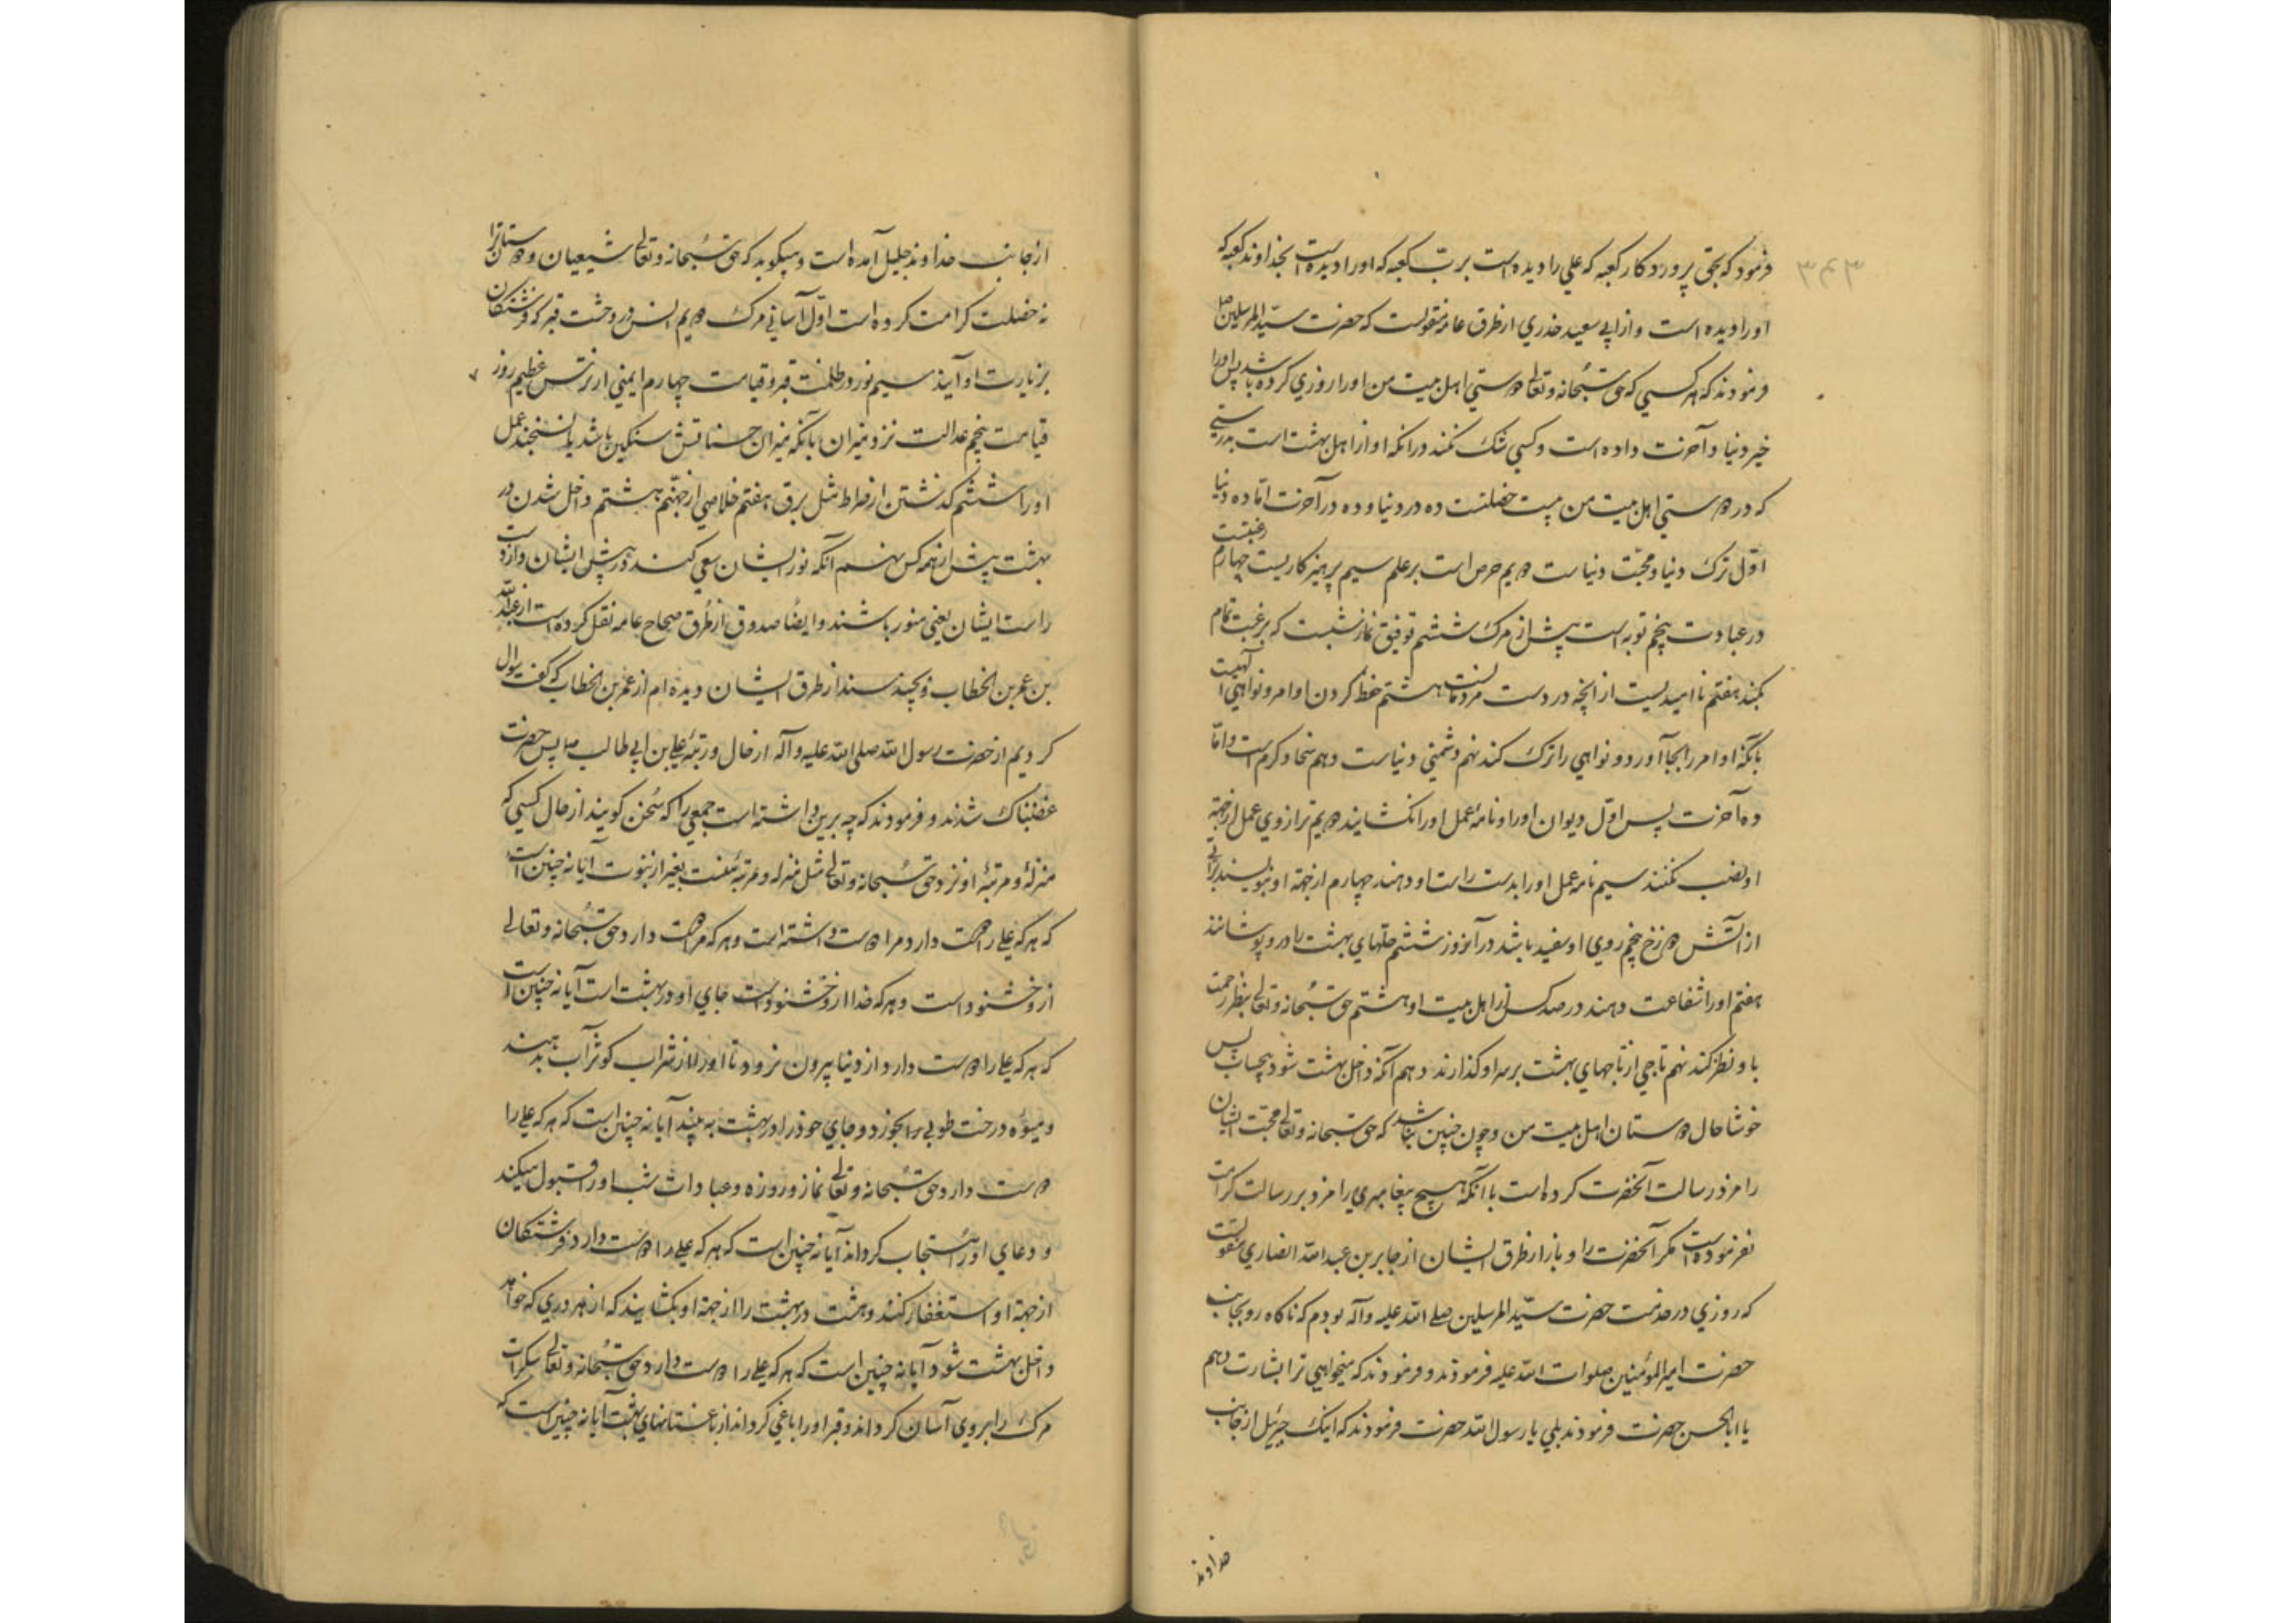 فرمود که بحق پروردکار کعبه که علی را دیده است برب کعبه که اورا دیده است بخداوند کعبه که
اورا دیده است و از ابی سعید خدری از طرق عامه منقولست که حضرت سید المرسلین ص
فرمودند که هر کسی که حق سبحانه و تعالی دوستی اهل بیت من اورا روزی کرده باشد پس اورا
خیر دنیا و آخرت داده است و کسی شک نکند در انکه او از اهل بهشت است بدرستی
که در دوستی اهل بیت من بیست خصلتست ده در دنیا و ده در آخرت اما ده دنیا
اول ترک دنیا و محبت دنیاست دویم حرص است بر علم سیم پرهیزکاریست چهارم رغبتست
در عبادت پنجم توبه است پیش از مرک ششم توفیق نماز شبست که برغبت تمام
بکند هفتم ناامیدیست از انچه در دست مردمانست هشتم حفظ کردن اوامر و نواهی الهیست
بانکه اوامر را بجا آورد و نواهی را ترک کند نهم دشمنی دنیاست دهم سخا و کرم است و اما
ده آخرت پس اول دیوان اورا و نامهٔ عمل اورا نکشایند دویم ترازوی عمل از جهة
او نصب نکنند سیم نامه عمل اورا بدست راست او دهند چهارم از جهة او بنویسند براتی
از آتش دوزخ پنجم روی او سفید باشد در آنروز ششم حلهای بهشت را درو پوشانند
هفتم اورا شفاعت دهند در صد کس از اهل بیت او هشتم حق سبحانه و تعالی بنظر رحمت
باو نظر کند نهم تاجی از تاجهای بهشت بر سر او کذارند دهم آنکه داخل بهشت شود بیحساب پس
خوشا حال دوستان اهل بیت من و چون چنین نباشد که حق سبحانه و تعالی محبت ایشان
را مزد رسالت آنحضرت کرده است با آنکه هیچ پیغامبری را مزد بر رسالت کرامت
نفرموده است مکر آنحضرت را و باز از طرق ایشان از جابر بن عبد الله انصاری منقولست
که روزی در خدمت حضرت سید المرسلین صلی الله علیه و آله بودم که ناکاه رو بجانب
حضرت امیر المؤمنین صلوات الله علیه فرمودند و فرمودند که میخواهی ترا بشارت دهم
یا ابا الحسن حضرت فرمودند بلی یا رسول الله حضرت فرمودند که اینک جبرئیل از جانب
خداوند
از جانب خداوند جلیل آمده است و میکوید که حق سبحانه و تعالی شیعیان و دوستان ترا
نه خصلت کرامت کرده است اول آسانی مرک دویم انس در وحشت قبر که فرشتکان
بزیارت او آیند سیم نور در ظلمت قبر و قیامت چهارم ایمنی از ترس عظیم روز
قیامت پنجم عدالت نزد میزان بانکه میزان حسناتش سنکین باشد یا نسنجند عمل
اورا ششم کذشتن از صراط مثل برق هفتم خلاصی از جهنم هشتم داخل شدن در
بهشت پیش از همه کس نهم آنکه نور ایشان سعی کند در پیش ایشان و از دست
راست ایشان یعنی منور باشند و ایضا صدوق از طرق صحاح عامه نقل کرده است از عبد الله
بن عمر بن الخطاب و بچند سند از طرق ایشان دیده ام از عمر بن الخطاب که کفت سوال
کردیم از حضرت رسول الله صلی الله علیه و آله از حال و رتبهٔ علی بن ابی طالب پس حضرت
غضبناک شدند و فرمودند که چه برین داشته است جمعی را که سخن کویند از حال کسی که
منزله و مرتبهٔ او نزد حق سبحانه و تعالی مثل منزله و مرتبهٔ منست بغیر از نبوت آیا نه چنین است
که هر که علی را دوست دارد مرا دوست داشته است و هر که مرا دوست دارد حق سبحانه و تعالی
ازو خشنود است و هر که خدا ازو خشنود است جای او در بهشت است آیا نه چنین است
که هر که علی را دوست دارد از دنیا بیرون نرود تا اورا از شراب کوثر آب بدهند
و میوهٔ درخت طوبی را بخورد و جای خود را در بهشت به بیند آیا نه چنین است که هر که علی را
دوست دارد حق سبحانه و تعالی نماز و روزه و عبادات شب اورا قبول میکند
و دعای اورا مستجاب کرداند آیا نه چنین است که هر که علی را دوست دارد فرشتکان
از جهة او استغفار کنند و هشت در بهشت را از جهة او بکشایند که از هر دری که خواهد
داخل بهشت شود آیا نه چنین است که هر که علی را دوست دارد حق سبحانه و تعالی سکرات
مرک را بروی آسان کرداند و قبر اورا باغی کرداند از باغستانهای بهشت آیا نه چنین است که